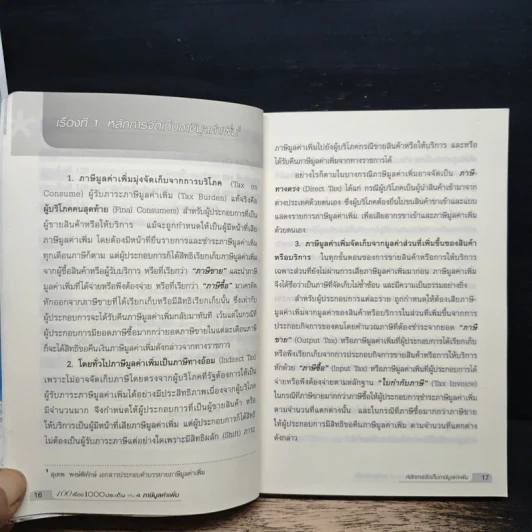 เรื่องที่ 1 หลักการจัดเก็บภาษีมูลค่าเพิ่ม¹
1. ภาษีมูลค่าเพิ่มมุ่งจัดเก็บจากการบริโภค (Tax on
Consume) ผู้รับภาระภาษีมูลค่าเพิ่ม (Tax Burden) แท้จริงคือ
ผู้บริโภคคนสุดท้าย (Final Consumers) สำหรับผู้ประกอบการที่เป็น
ผู้ขายสินค้าหรือให้บริการ แม้จะถูกกำหนดให้เป็นผู้มีหน้าที่เสีย
ภาษีมูลค่าเพิ่ม โดยต้องมีหน้าที่ยื่นรายการและชำระภาษีมูลค่าเพิ่ม
ทุกเดือนภาษีก็ตาม แต่ผู้ประกอบการก็ได้สิทธิเรียกเก็บภาษีมูลค่าเพิ่ม
จากผู้ซื้อสินค้าหรือผู้รับบริการ หรือที่เรียกว่า "ภาษีขาย" และนำภาษี
มูลค่าเพิ่มที่ได้จ่ายหรือพึงต้องจ่าย หรือที่เรียกว่า "ภาษีซื้อ" มาเครดิต
หักออกจากภาษีขายที่ได้เรียกเก็บหรือมีสิทธิเรียกเก็บนั้น ซึ่งเท่ากับ
ผู้ประกอบการจะได้รับคืนภาษีมูลค่าเพิ่มกลับมาทันที เว้นแต่ในกรณีที่
ผู้ประกอบการมียอดภาษีซื้อมากกว่ายอดภาษีขายในแต่ละเดือนภาษี
ก็จะได้สิทธิขอคืนเงินภาษีมูลค่าเพิ่มดังกล่าวจากทางราชการ
2. โดยทั่วไปภาษีมูลค่าเพิ่มเป็นภาษีทางอ้อม (Indirect Tax)
เพราะไม่อาจจัดเก็บภาษีโดยตรงจากผู้บริโภคที่รัฐต้องการให้เป็น
ผู้รับภาระภาษีมูลค่าเพิ่มได้อย่างมีประสิทธิภาพเนื่องจากผู้บริโภค
มีจำนวนมาก จึงกำหนดให้ผู้ประกอบการที่เป็นผู้ขายสินค้า หรือ
ให้บริการเป็นผู้มีหน้าที่เสียภาษีมูลค่าเพิ่ม แต่ผู้ประกอบการก็ได้
ไม่ต้องเป็นผู้รับภาระภาษีแต่อย่างใดเพราะมีสิทธิผลัก (Shift) ภาระ
¹ สุเทพ พงษ์พิทักษ์ เอกสารประกอบคำบรรยายภาษีมูลค่าเพิ่ม
16 100 เรื่อง 1000 ประเด็น เล่ม 4 ภาษีมูลค่าเพิ่ม
ภาษีมูลค่าเพิ่มไปยังผู้บริโภคกรณีขายสินค้าหรือให้บริการ และหรือ
ได้รับคืนภาษีมูลค่าเพิ่มจากทางราชการได้
อย่างไรก็ตามในบางกรณีภาษีมูลค่าเพิ่มอาจจัดเป็น ภาษี
ทางตรง (Direct Tax) ได้แก่ กรณีผู้บริโภคเป็นผู้นำสินค้าเข้ามาจาก
ต่างประเทศด้วยตนเอง ซึ่งผู้บริโภคต้องยื่นใบขนสินค้าขาเข้าและแบบ
แสดงรายการภาษีมูลค่าเพิ่ม เพื่อเสียอากรขาเข้าและภาษีมูลค่าเพิ่ม
ด้วยตนเอง
3. ภาษีมูลค่าเพิ่มจัดเก็บจากมูลค่าส่วนที่เพิ่มขึ้นของสินค้า
หรือบริการ ในทุกขั้นตอนของการขายสินค้าหรือการให้บริการ
เฉพาะส่วนที่ยังไม่ผ่านการเสียภาษีมูลค่าเพิ่มมาก่อน ภาษีมูลค่าเพิ่ม
จึงได้ชื่อว่าเป็นภาษีที่จัดเก็บไม่ซ้ำซ้อน และมีความเป็นธรรมอย่างยิ่ง
สำหรับผู้ประกอบการแต่ละราย ถูกกำหนดให้ต้องเสียภาษี-
มูลค่าเพิ่มจากมูลค่าของสินค้าหรือบริการในส่วนที่เพิ่มขึ้นจากการ
ประกอบกิจการของตนโดยคำนวณภาษีที่ต้องชำระจากยอด "ภาษี
ขาย" (Output Tax) หรือภาษีมูลค่าเพิ่มที่ผู้ประกอบการได้เรียกเก็บ
หรือพึงเรียกเก็บจากการประกอบกิจการขายสินค้าหรือการให้บริการ
หักด้วย "ภาษีซื้อ" (Input Tax) หรือภาษีมูลค่าเพิ่มที่ผู้ประกอบการได้
จ่ายหรือพึงต้องจ่ายตามหลักฐาน "ใบกำกับภาษี" (Tax Invoice)
ในกรณีที่ภาษีขายมากกว่าภาษีซื้อให้ผู้ประกอบการชำระภาษีมูลค่าเพิ่ม
ตามจำนวนที่แตกต่างนั้น และในกรณีที่ภาษีซื้อมากกว่าภาษีขาย
ให้ผู้ประกอบการได้รับคืนภาษีมูลค่าเพิ่ม ตามจำนวนที่แตกต่าง
ดังกล่าว
หลักการจัดเก็บภาษีมูลค่าเพิ่ม 17